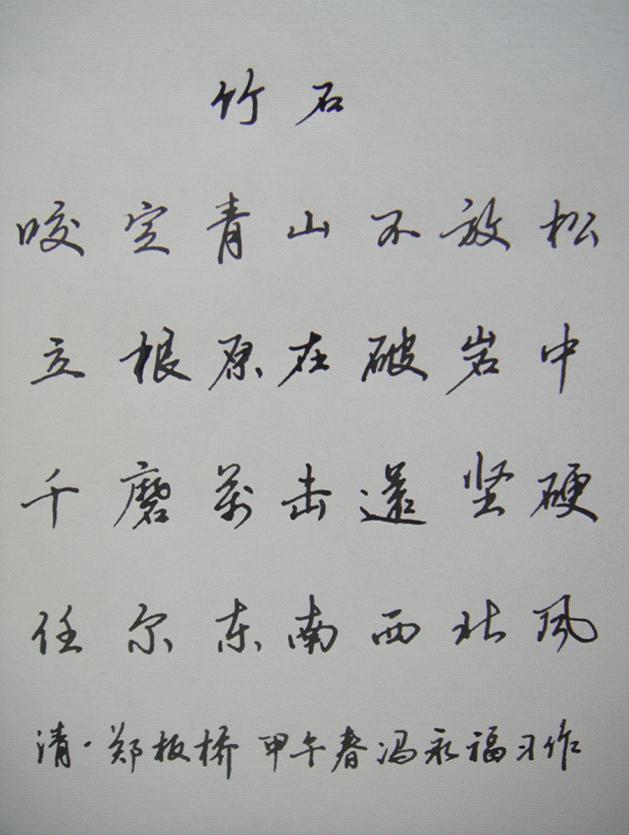 竹石
咬定青山不放松
立根原在破岩中
千磨萬击還坚硬
任尔东南西北风
清·郑板桥 甲午春冯永福习作